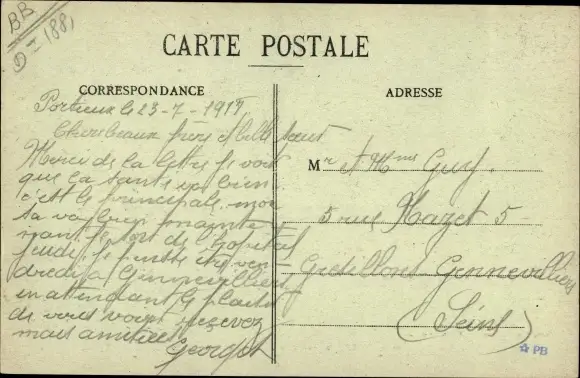 BB
D-1881
CARTE POSTALE
CORRESPONDANCE
ADRESSE
Portieux le 23-7-1917
Chers beaux frère et belle soeur
Merci de la lettre je voit
que la santé va bien
c'est le principale mon
sa va bien mainte
nant je sor de l'hopital
jeudi je
dredi a Genneviliers
en attendant le plaisir
de vous voir recevez
mais amitiées
Georges
Mr et Mme Guy.
5 rue Mazet 5
Gresillons Gennevilliers
(Seine)
PB